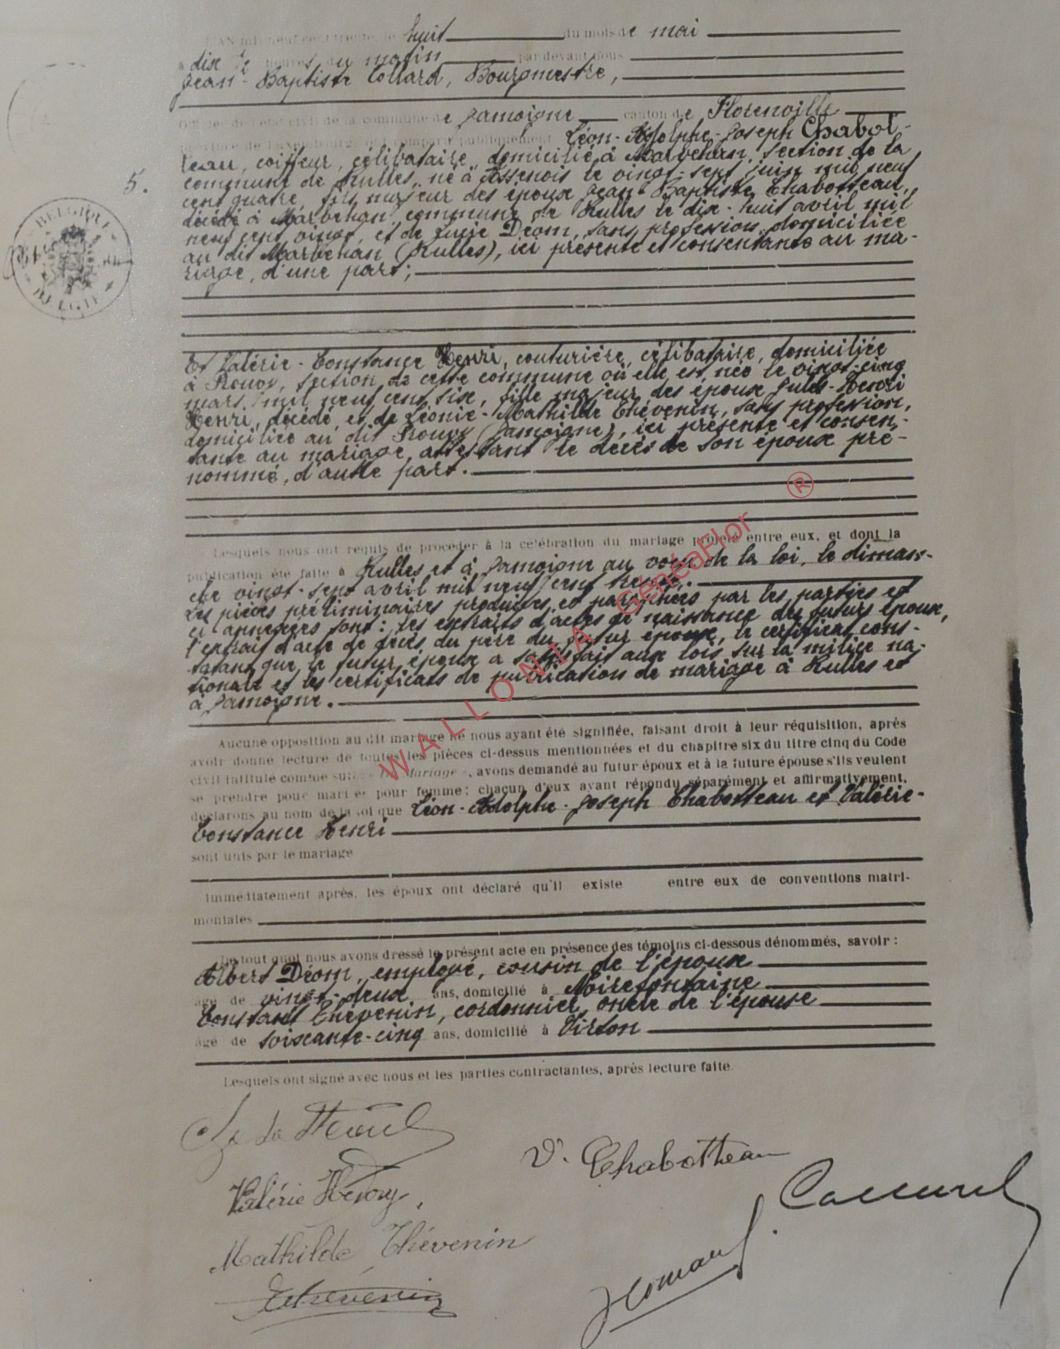 L'AN mil neuf cent trente, le huit du mois de mai
à dix heures du matin par devant nous
Jean-Baptiste Collard, Bourgmestre,
Officier de l'état civil de la commune de Jamoigne canton de Florenville
province de Luxembourg, publiquement Léon-Adolphe-Joseph Chabot-
teau, coiffeur, célibataire, domicilié à Marbehan, section de la
5.
commune de Rulles, né à Assenois le vingt-sept juin mil neuf
cent quatre, fils majeur des époux Jean-Baptiste Chabotteau,
décédé à Marbehan, commune de Rulles le dix-huit avril mil
neuf cent vingt, et de Lucie Déom, sans profession, domiciliée
au dit Marbehan (Rulles), ici présente et consentante au ma-
riage, d'une part;
BELGIQUE
BELGIË
Et Valérie-Constance Henri, couturière, célibataire, domiciliée
à Prouvy, section de cette commune où elle est née le vingt-cinq
mars mil neuf cent six, fille majeur des époux Jules-Henri
Henri, décédé, et de Léonie-Mathilde Thévenin, sans profession,
domiciliée au dit Prouvy (Jamoigne), ici présente et consen-
tante au mariage, attestant le décès de son époux pré-
nommé, d'autre part.
Lesquels nous ont requis de procéder à la célébration du mariage projeté entre eux, et dont la
publication été faite à Rulles et à Jamoigne au vœu de la loi, le diman-
che vingt-sept avril mil neuf cent trente.
Les pièces préliminaires produites et paraphées par les parties et
ci annexées sont: les extraits d'actes de naissance des futurs époux,
l'extrait d'acte de décès du père du futur époux, le certificat cons-
tatant que le futur époux a satisfait aux lois sur la milice na-
tionale et les certificats de publication de mariage à Rulles et
à Jamoigne.
WALLONIA GénéaFlor ®
Aucune opposition au dit mariage ne nous ayant été signifiée, faisant droit à leur réquisition, après
avoir donné lecture de toutes les pièces ci-dessus mentionnées et du chapitre six du titre cinq du Code
civil intitulé comme suit: Du Mariage, avons demandé au futur époux et à la future épouse s'ils veulent
se prendre pour mari et pour femme: chacun d'eux ayant répondu séparément et affirmativement,
déclarons au nom de la loi que Léon-Adolphe-Joseph Chabotteau et Valérie-
Constance Henri
sont unis par le mariage
Immédiatement après, les époux ont déclaré qu'il existe entre eux de conventions matri-
moniales
De tout quoi nous avons dressé le présent acte en présence des témoins ci-dessous dénommés, savoir:
Albert Déom, employé, cousin de l'époux
âgé de vingt-deux ans, domicilié à Noirefontaine
Constant Thévenin, cordonnier, oncle de l'épouse
âgé de soixante-cinq ans, domicilié à Virton
Lesquels ont signé avec nous et les parties contractantes, après lecture faite.
V. Chabotteau
Valérie Henry.
Mathilde Thévenin
Thévenin